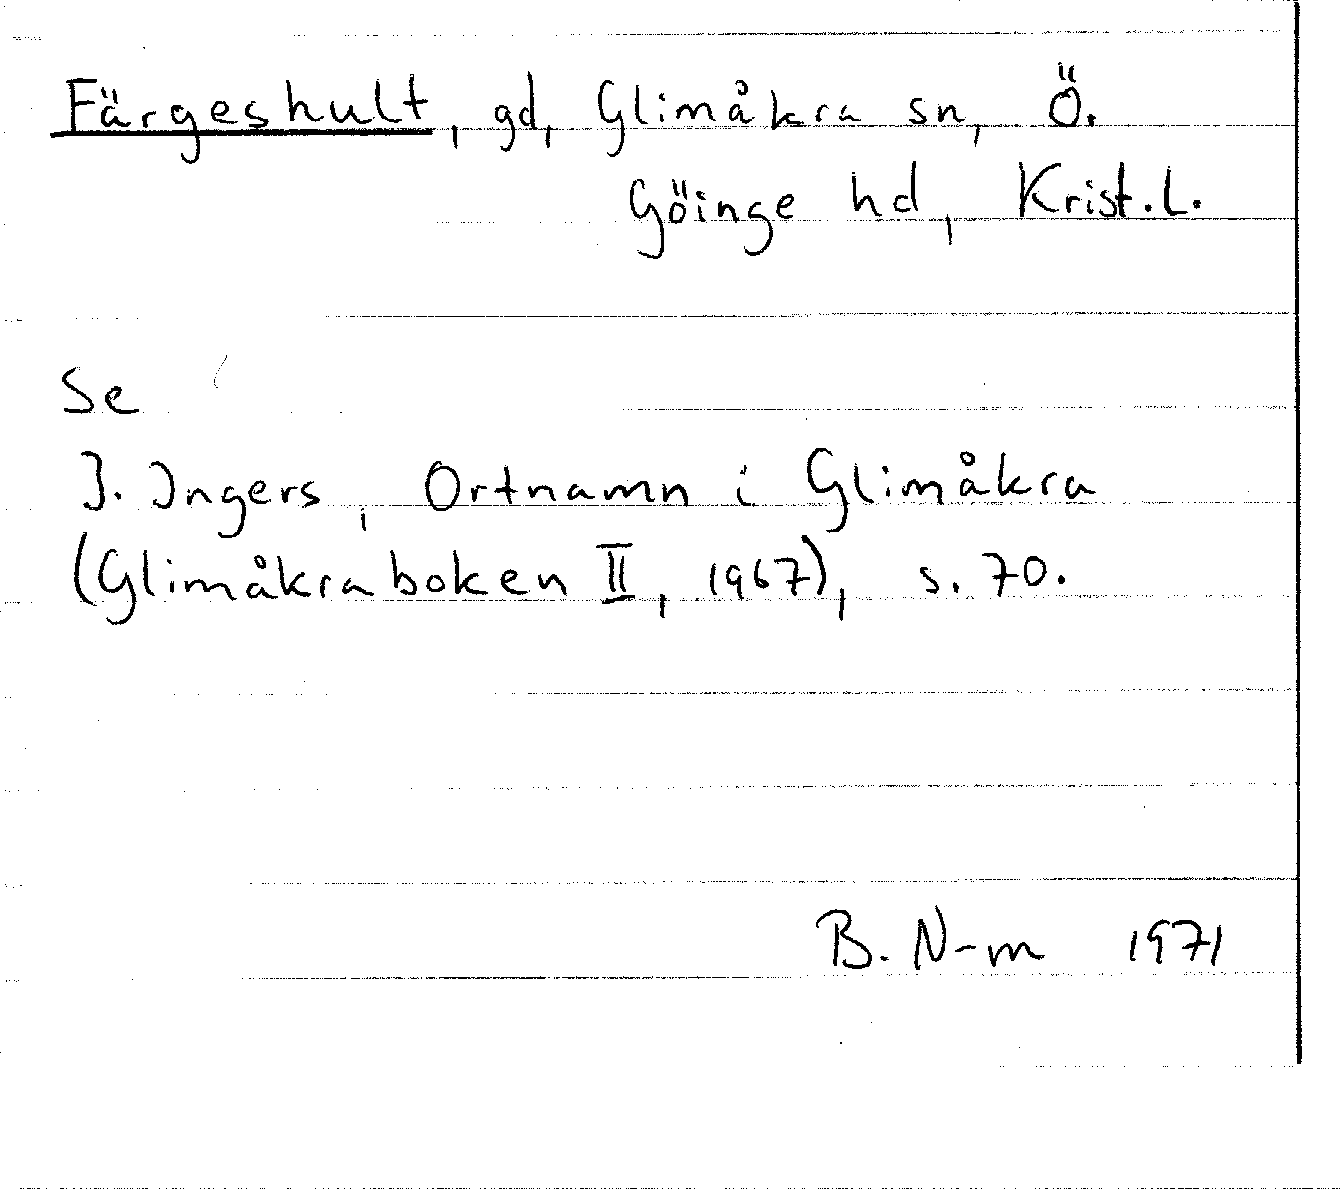 Färgeshult, gd, Glimåkra sn, Ö.
Göinge hd, Krist.L.
Se
I. Ingers, Ortnamn i Glimåkra
(Glimåkraboken II, 1967), s. 70.
B. N-m 1971